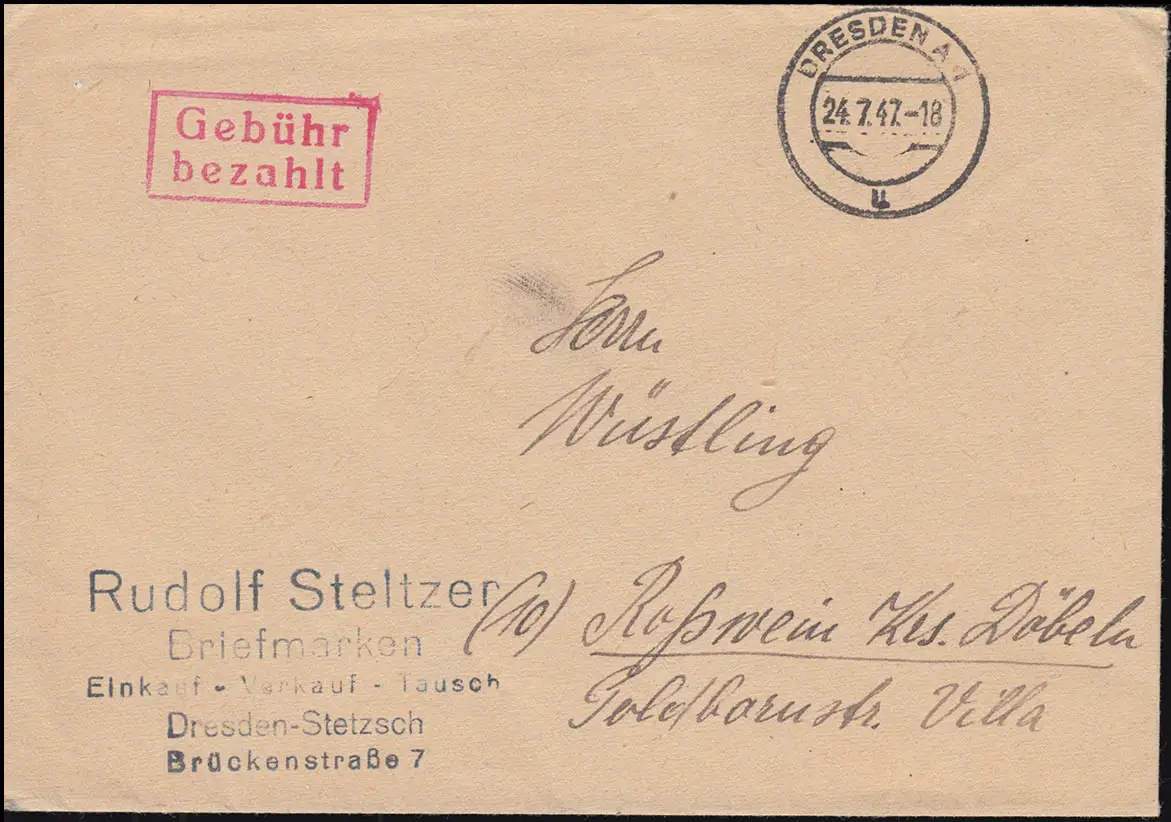 Gebühr
bezahlt
DRESDEN A 1
24.7.47.-18
u
Herrn
Wüstling
(10) Roßwein Krs. Döbeln
Goldbornstr. Villa
Rudolf Steltzer
Briefmarken
Einkauf - Verkauf - Tausch
Dresden-Stetzsch
Brückenstraße 7